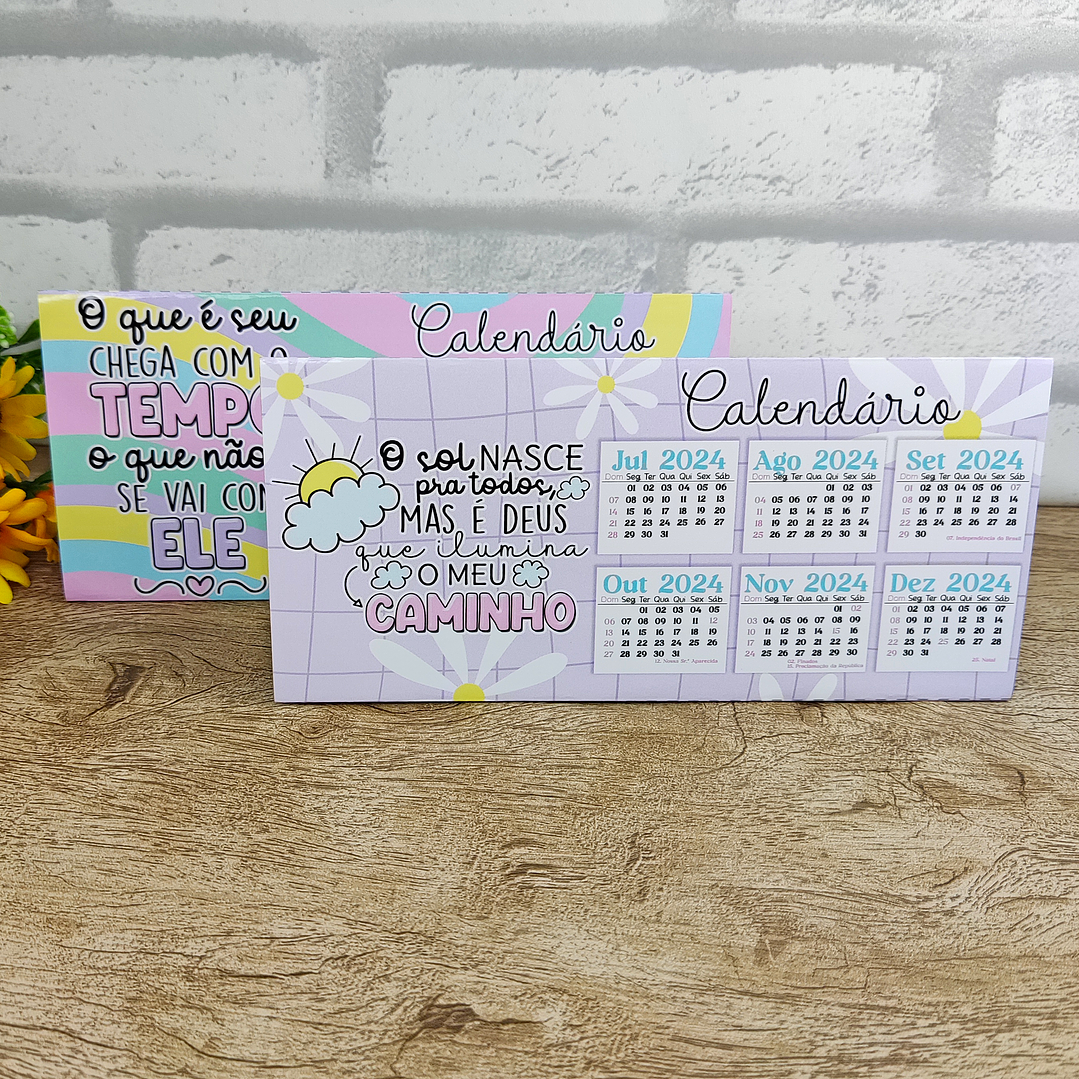 O que é seu
CHEGA COM O
TEMPO
o que não
SE VAI COM
ELE
Calendário
O sol NASCE
pra todos,
MAS É DEUS
que ilumina
O MEU
CAMINHO
Calendário
Jul 2024
Dom Seg Ter Qua Qui Sex Sáb
01 02 03 04 05 06
07 08 09 10 11 12 13
14 15 16 17 18 19 20
21 22 23 24 25 26 27
28 29 30 31
Ago 2024
Dom Seg Ter Qua Qui Sex Sáb
01 02 03
04 05 06 07 08 09 10
11 12 13 14 15 16 17
18 19 20 21 22 23 24
25 26 27 28 29 30 31
Set 2024
Dom Seg Ter Qua Qui Sex Sáb
01 02 03 04 05 06 07
08 09 10 11 12 13 14
15 16 17 18 19 20 21
22 23 24 25 26 27 28
29 30
07. Independência do Brasil
Out 2024
Dom Seg Ter Qua Qui Sex Sáb
01 02 03 04 05
06 07 08 09 10 11 12
13 14 15 16 17 18 19
20 21 22 23 24 25 26
27 28 29 30 31
12. Nossa Sr.ª Aparecida
Nov 2024
Dom Seg Ter Qua Qui Sex Sáb
01 02
03 04 05 06 07 08 09
10 11 12 13 14 15 16
17 18 19 20 21 22 23
24 25 26 27 28 29 30
02. Finados
15. Proclamação da República
Dez 2024
Dom Seg Ter Qua Qui Sex Sáb
01 02 03 04 05 06 07
08 09 10 11 12 13 14
15 16 17 18 19 20 21
22 23 24 25 26 27 28
29 30 31
25. Natal